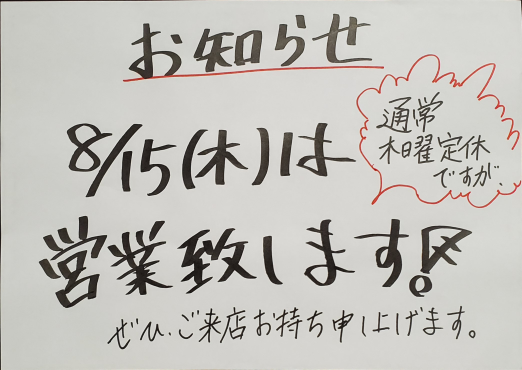 お知らせ
通常
木曜定休
ですが、
8/15(木)は
営業致します!〆
ぜひ、ご来店お持ち申し上げます。